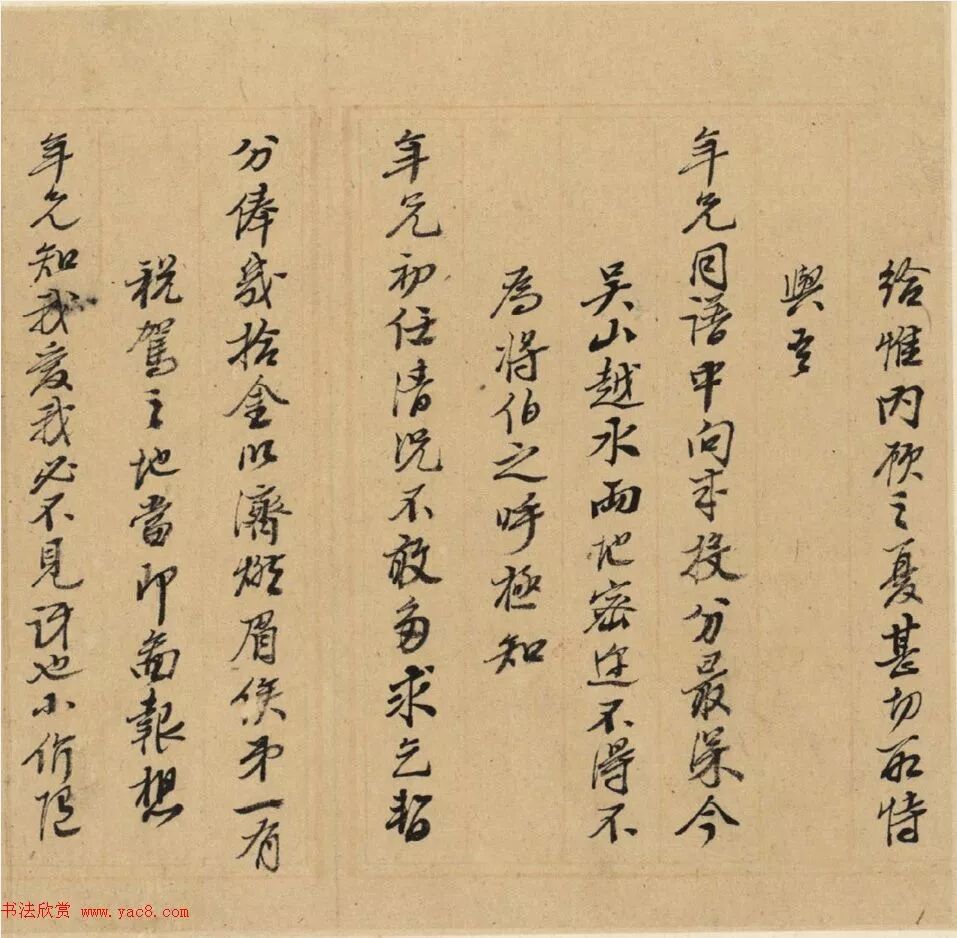 給惟内顾之憂甚切所恃
與吾
年兄同譜中向来投分最深今
吳山越水两地密迩不得不
為将伯之呼極知
年兄初任清况不敢多求乞暂
分俸幾拾金以濟燃眉俟弟一有
税駕之地當即啚報想
年兄知我爱我必不見訝也小价
书法欣赏 www.yac8.com